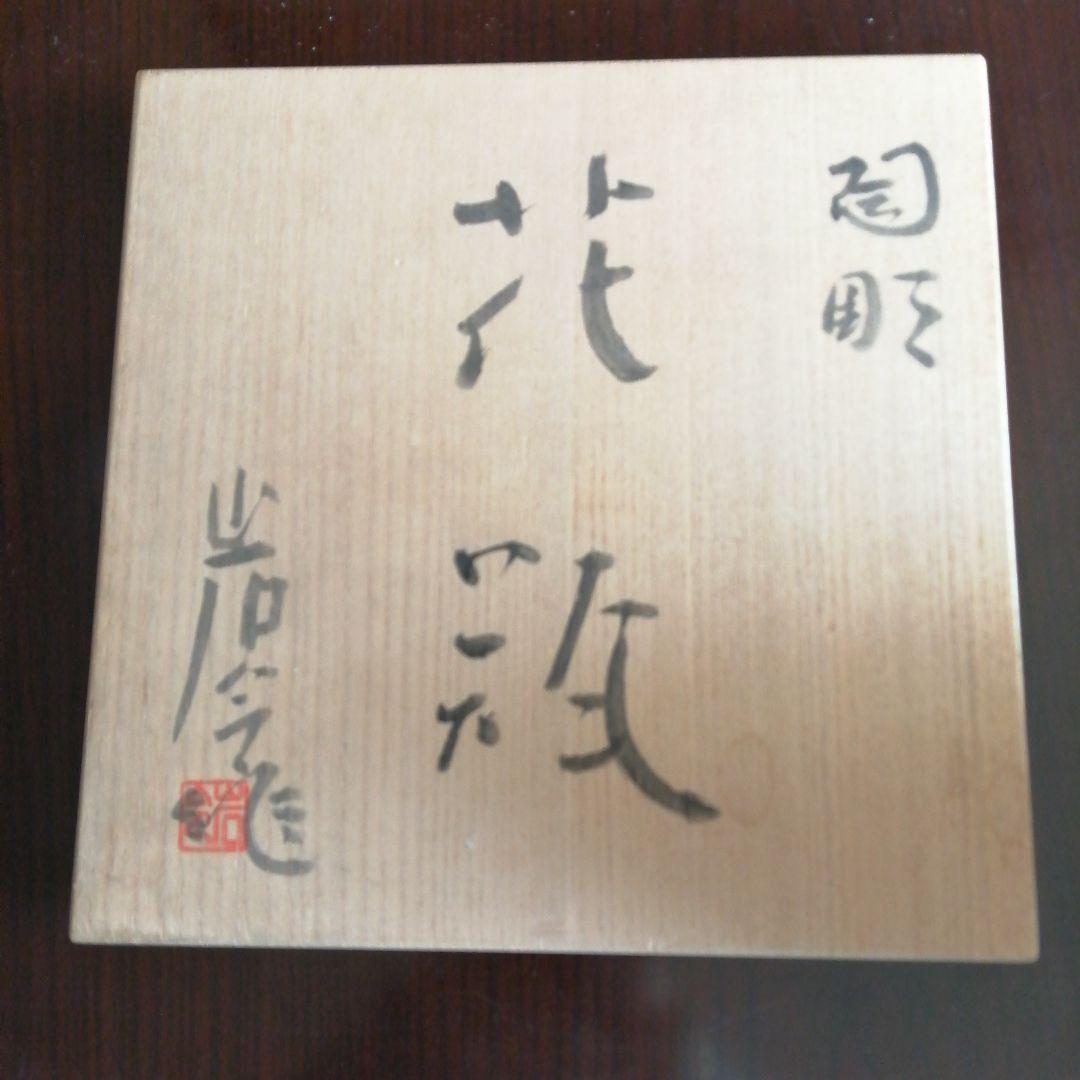 陶彫
花瓶
岩